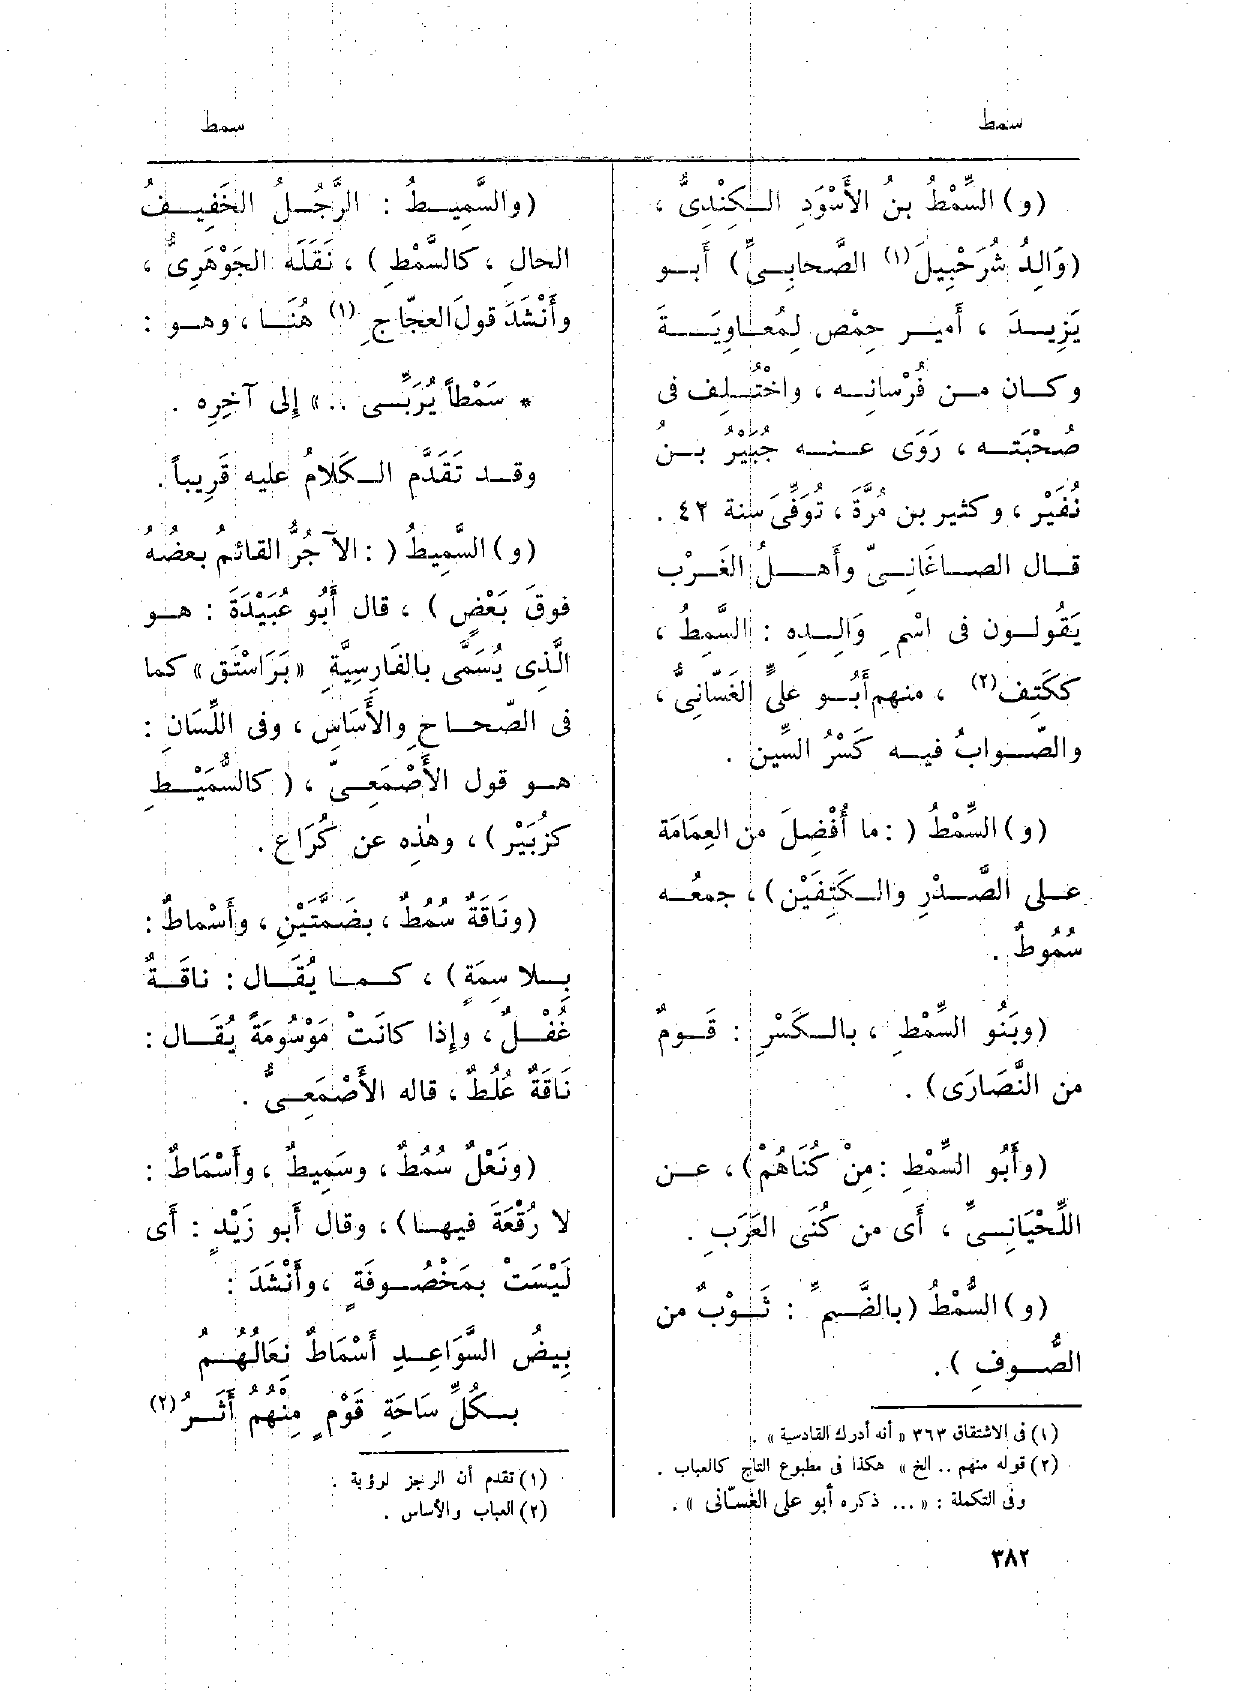 سمط
سمط
(و) السِّمْطُ بنُ الأَسْوَدِ الـكِنْدِىُّ ،
(وَالِدُ شُرَحْبِيلَ (١) الصَّحابِـىِّ) أَبـو
يَزِيـدَ ، أَميـر حِمْص لِمُعـاوِيَـةَ
وكـان مـن فُرْسانِـه ، واخْتُـلِف فى
صُحْبَتـه ، رَوَى عنـه جُبَيْرُ بـنُ
نُفَيْر ، وكثير بن مُرَّةَ ، تُوُفِّىَ سنة ٤٢ .
قـال الصـاغَانِـىّ وأَهـلُ الغَـرْب
يَقُولـون فى اسْمِ وَالِـدِه : السَّمِطُ ،
ككَتِف (٢) ، منهم أَبُـو علىٍّ الغَسّانِىُّ ،
والصّـوابُ فيـه كَسْرُ السِّين .
(و) السِّمْطُ ( : ما أُفْضِلَ من العِمَامَة
علـى الصَّـدْرِ والـكَتِفَيْن) ، جمعُـه
سُمُوطٌ .
(وبَنُو السِّمْطِ ، بالـكَسْرِ : قَـومٌ
من النَّصَارَى) .
(وأَبُو السِّمْطِ : مِنْ كُنَاهُمْ) ، عـن
اللِّحْيَانِـىِّ ، أَى من كُنَى العَرَبِ .
(و) السُّمْطُ (بالضَّـمِّ : ثَـوْبٌ من
الصُّـوفِ ) .
(١) فى الاشتقاق ٣٦٣ « أنه أدرك القادسية » .
(٢) قوله منهم .. الخ » هكذا فى مطبوع التاج كالعباب .
وفى التكملة : « ... ذكره أبو على الغسّانى » .
٣٨٢
(والسَّمِيـطُ : الرَّجُـلُ الخَفِيـفُ
الحالِ ، كالسَّمْطِ ) ، نَقَلَه الجَوْهَرِىُّ ،
وأَنْشَدَ قولَ العجّاجِ (١) هُنَـا ، وهـو :
* سَمْطاً يُرَبِّـى .. » إلى آخِرِه .
وقـد تَقَدَّم الـكَلامُ عليه قَرِيباً .
(و) السَّمِيطُ ( : الآجُرُّ القائمُ بعضُهُ
فوقَ بَعْضٍ ) ، قال أَبُو عُبَيْدَةَ : هـو
الَّذِى يُسَمَّى بالفَارِسِيَّةِ « بَرَاسْتَق » كما
فى الصّحـاحِ والأَسَاسِ ، وفى اللِّسَانِ :
هـو قول الأَصْمَعِـىِّ ، ( كالسُّمَيْـطِ
كزُبَيْر ) ، وهٰذِه عن كُرَاع .
(ونَاقَةٌ سُمُطٌ ، بضَمَّتَيْنِ ، وأَسْماطٌ :
بِـلا سِمَةٍ ) ، كـمـا يُقَـال : ناقَـةٌ
غُفْـلٌ ، وإِذا كانَتْ مَوْسُومَةً يُقَـال :
نَاقَةٌ عُلُطٌ ، قاله الأَصْمَعِـىُّ .
(ونَعْلٌ سُمُطٌ ، وسَمِيطٌ ، وأَسْمَاطٌ :
لا رُقْعَةَ فيهـا ) ، وقال أَبو زَيْدٍ : أَى
لَيْسَتْ بمَخْصُـوفَةٍ ، وأَنْشَدَ :
بِيضُ السَّوَاعِـدِ أَسْمَاطٌ نِعَالُهُـمُ
بـكُلِّ سَاحَةِ قَوْمٍ مِنْهُمُ أَثَـرُ (٢)
(١) تقدم أن الرجز لرؤبة .
(٢) العباب والأساس .